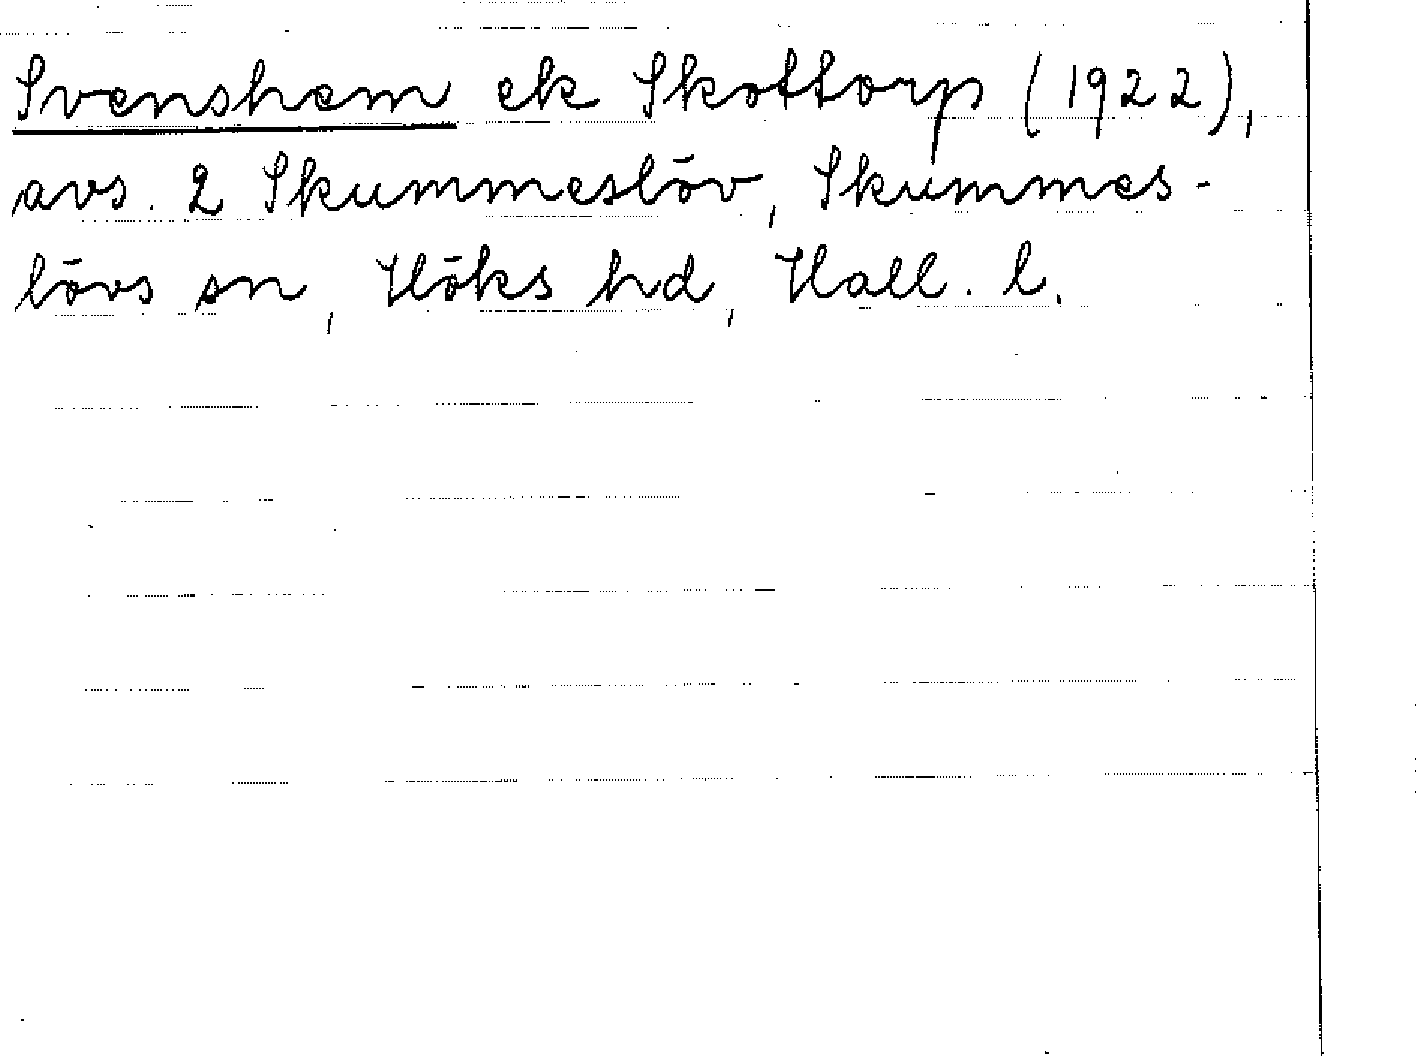 Svenshem ek Skottorp (1922),
avs. 2 Skummeslöv, Skummes-
lövs sn, Höks hd, Hall. l.